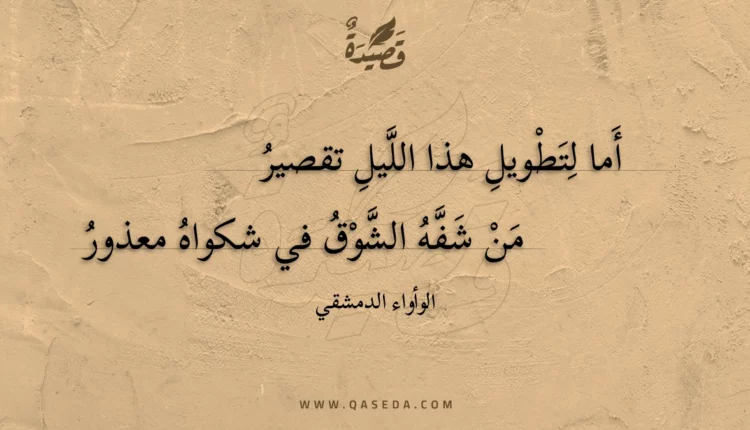 قَصِيْدَةٌ
أَما لِتَطْويلِ هذا اللَّيلِ تقصيرُ
مَنْ شَفَّهُ الشَّوْقُ في شكواهُ معذورُ
الوأواء الدمشقي
WWW.QASEDA.COM